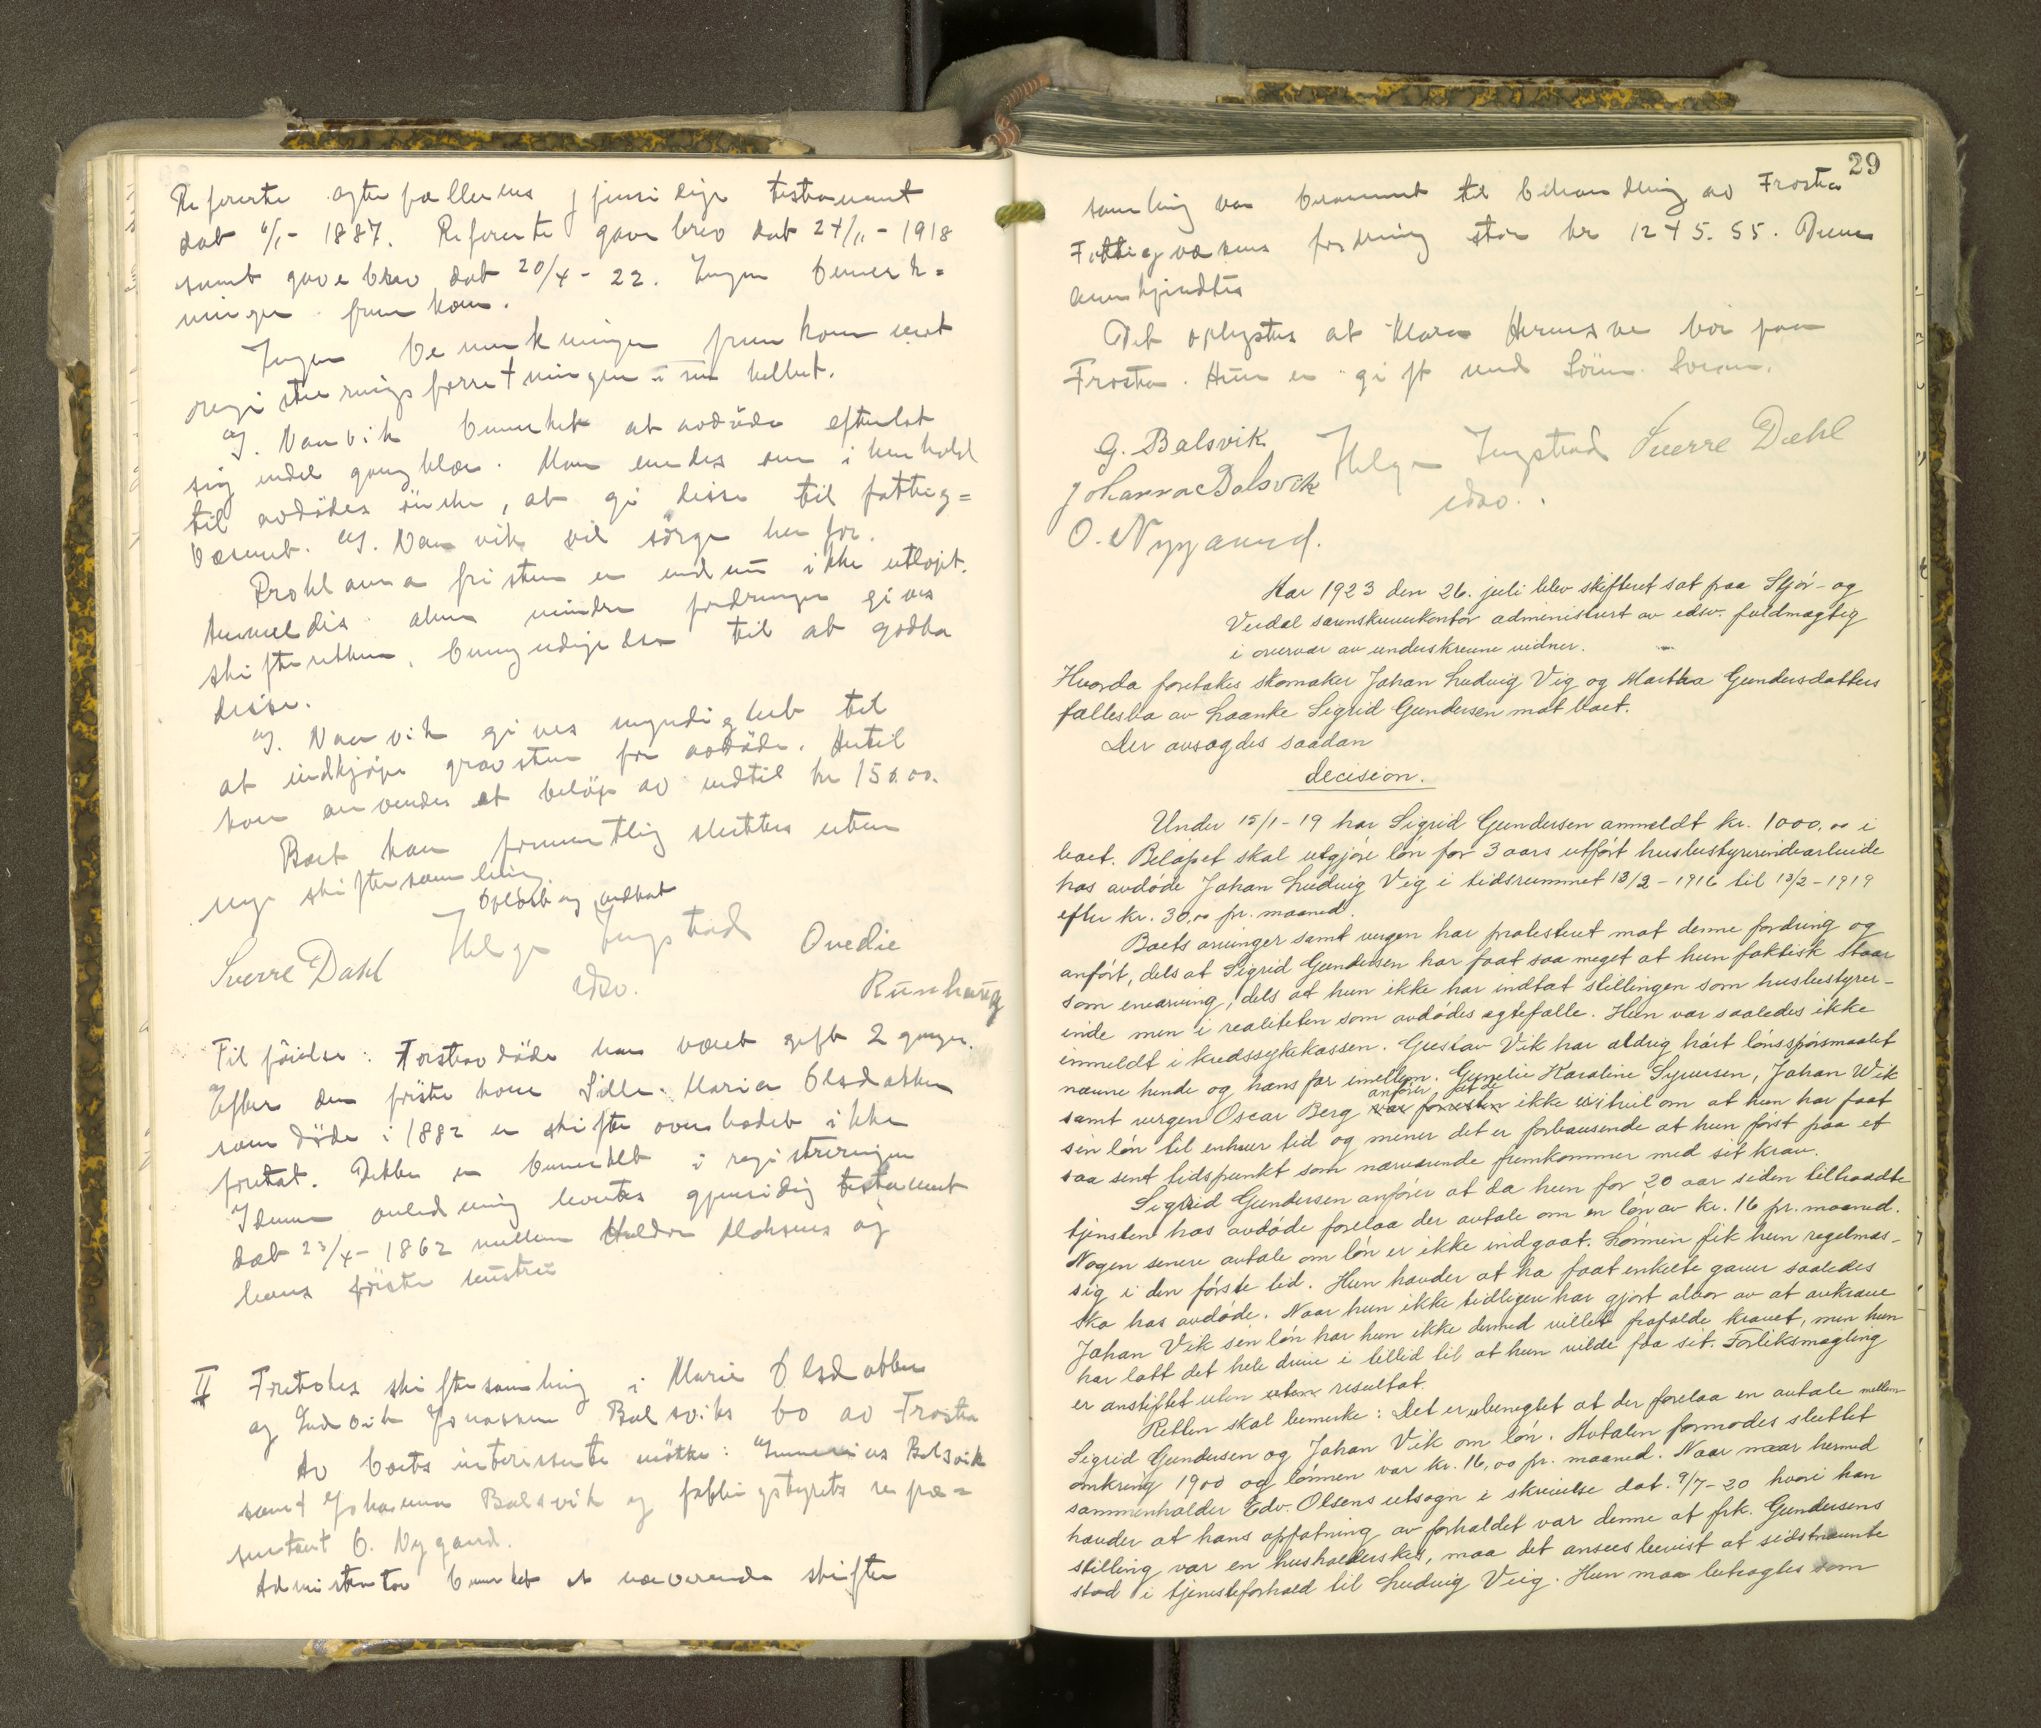 Refererte egtefællernes gjensidige testament
dat 6/1 - 1887. Refererte gavebrev dat 24/11 - 1918
samt gavebrev dat 20/4 - 22. Ingen bemerk=
ninger fremkom.
Ingen bemerkninger fremkom mot
registreringsforretningen i sin helhet.
Naavik bemerket at avdøde efterlot
sig endel gangklær. Man enedes om i henhold
til avdødes ønske, at gi disse til fattig=
væsenet. Naavik vil sørge herfor.
Proklamafristen er endnu ikke utløpt.
Anmeldes alene mindre fordringer gives
skifteretten bemyndigelse til at godta
disse.
Naavik gives myndighet til
at indkjøpe gravsten for avdøde. Hertil
kan anvendes et beløp av indtil kr 150.00.
Boet kan formentlig sluttes uten
ny skiftesamling.
Oplæst og vedtat
Sverre Dahl Helge Ingstad Ovedie
edsv. Runhaug
Tilføielse: Forstavdøde har været gift 2 ganger.
Efter den første kone Lille Maria Olsdatter
som døde i 1882 er skifte overhodet ikke
foretat. Dette er bemerket i registreringen
I denne anledning levertes gjensidig testament
dat 23/4 - 1862 mellem Haldor og
hans første hustru
II Foretokes skiftesamling i Marie Olsdatter
og Ludvik Jonassen Balsviks bo av Frosta
Av boets interessenter møtte: Balsvik
samt Johanna Balsvik og fattigstyrets repræ=
sentant O. Nygaard.
Administrator bemerket at nærværende skifte
29
samling var berammet til behandling av Frosta
Fattigvæsens fordring stor kr 1245.55. Denne
anerkjendtes
Det oplystes at Klara bor paa
Frosta. Hun er gift med Sören
G. Balsvik Helge Ingstad Sverre Dahl
Johanna Balsvik edsv.
O. Nygaard.
Aar 1923 den 26. juli blev skifteret sat paa Stjør- og
Verdal sorenskriverkontor administrert av edsv. fuldmægtig
i overvær av underskrevne vidner.
Hvorda foretokes skomaker Johan Ludvig Vig og Martha Gundersdatters
fællesbo av Laanke Sigrid Gundersen mot boet.
Der avsagdes saadan
decision.
Under 15/1-19 har Sigrid Gundersen anmeldt kr. 1000,00 i
boet. Beløpet skal utgjøre løn for 3 aars utført husbestyrerindearbeide
hos avdøde Johan Ludvig Vig i tidsrummet 13/2 - 1916 til 13/2 - 1919
efter kr. 30,00 pr. maaned.
Boets arvinger samt vergen har protestert mot denne fordring og
anført, dels at Sigrid Gundersen har faat saa meget at hun faktisk staar
som enearving, dels at hun ikke har indtat stillingen som husbestyrer-
inde men i realiteten som avdødes egtefælle. Hun var saaledes ikke
inmeldt i kredssykekassen. Gustav Vik har aldrig hørt lønsspørsmaalet
nævne hende og hans far imellem. Gunelie Karoline Syversen, Johan Vik
anfører at de
samt vergen Oscar Berg var forresten ikke i tvil om at hun har faat
sin løn til enhver tid og mener det er forbausende at hun først paa et
saa sent tidspunkt som nærværende fremkommer med sit krav.
Sigrid Gundersen anfører at da hun for 20 aar siden tiltraadte
tjensten hos avdøde forelaa der avtale om en løn av kr. 16 pr. maaned.
Nogen senere avtale om løn er ikke indgaat. Lønnen fik hun regelmæs-
sig i den første tid. Hun hævder at ha faat enkelte gaver saaledes
sko hos avdøde. Naar hun ikke tidligere har gjort alvor av at avkræve
Johan Vik sin løn har hun ikke dermed villet frafalde kravet, men hun
har latt det hele drive i tillid til at hun vilde faa sit. Forliksmægling
er anstiftet uten uten resultat.
Retten skal bemerke: Det er ubenegtet at der forelaa en avtale mellem
Sigrid Gundersen og Johan Vik om løn. Avtalen formodes sluttet
omkring 1900 og lønnen var kr. 16,00 pr. maaned. Naar man hermed
sammenholder Edv. Olsens utsagn i skrivelse dat. 9/7-20 hvori han
hævder at hans opfatning av forholdet var denne at frk. Gundersens
stilling var en husholderskes, maa det ansees bevist at sidstnævnte
stod i tjenesteforhold til Ludvig Vig. Hun maa betragtes som